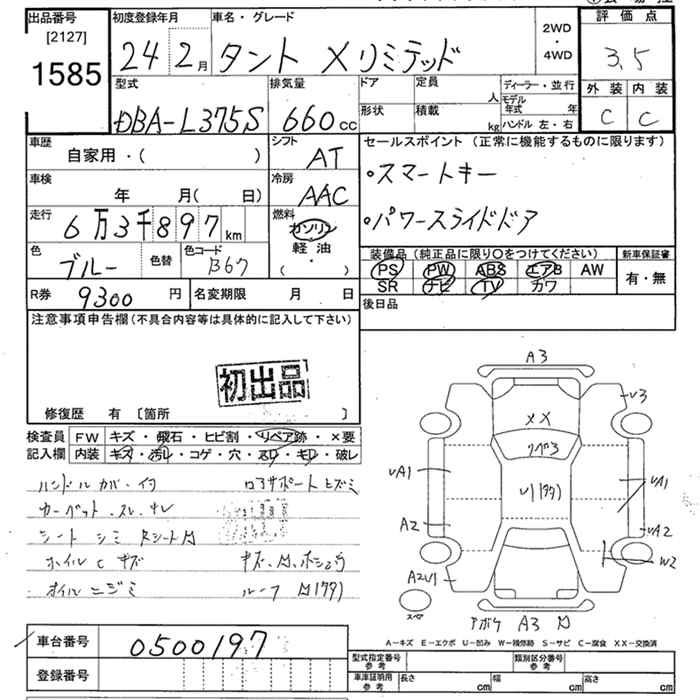 出品番号
[2127]
1585
初度登録年月
24 2月
車名・グレード
タント Xリミテッド
2WD
・
4WD
評価点
3.5
外装 内装
C C
型式
DBA-L375S
排気量
660cc
ドア
定員
人
形状
積載
kg
ディーラー・並行
モデル年式 年
ハンドル 左・右
車歴
自家用・( )
シフト
AT
車検
年 月( 日)
冷房
AAC
走行
6万3千897km
燃料
ガソリン
軽油
( ・ )
色
ブルー
色替
色コード
B67
R券
9300円
名変期限 月 日
セールスポイント(正常に機能するものに限ります)
・スマートキー
・パワースライドドア
装備品(純正品に限り○をつけてください)
PS PW ABS エアB AW
SR ナビ TV カワ
新車保証書
有・無
後日品
注意事項申告欄(不具合内容等は具体的に記入して下さい)
初出品
修復歴 有 [箇所 ]
検査員
記入欄
FW キズ・飛石・ヒビ割・リペア跡・×要
内装 キズ・汚レ・コゲ・穴・スレ・キレ・破レ
ハンドルカバー付
カーペットスレ キレ
シートシミ
ホイルCキズ
オイルニジミ
A3
XX
リペア3
U3
UA1
UA1
A2
UA2
W2
A2U1
スペア
A3
A-キズ E-エクボ U-凹み W-補修跡 S-サビ C-腐食 XX-交換済
車台番号
0500197
登録番号
型式指定番号
参考
類別区分番号
参考
車庫証明用
参考
長さ cm
幅 cm
高さ cm